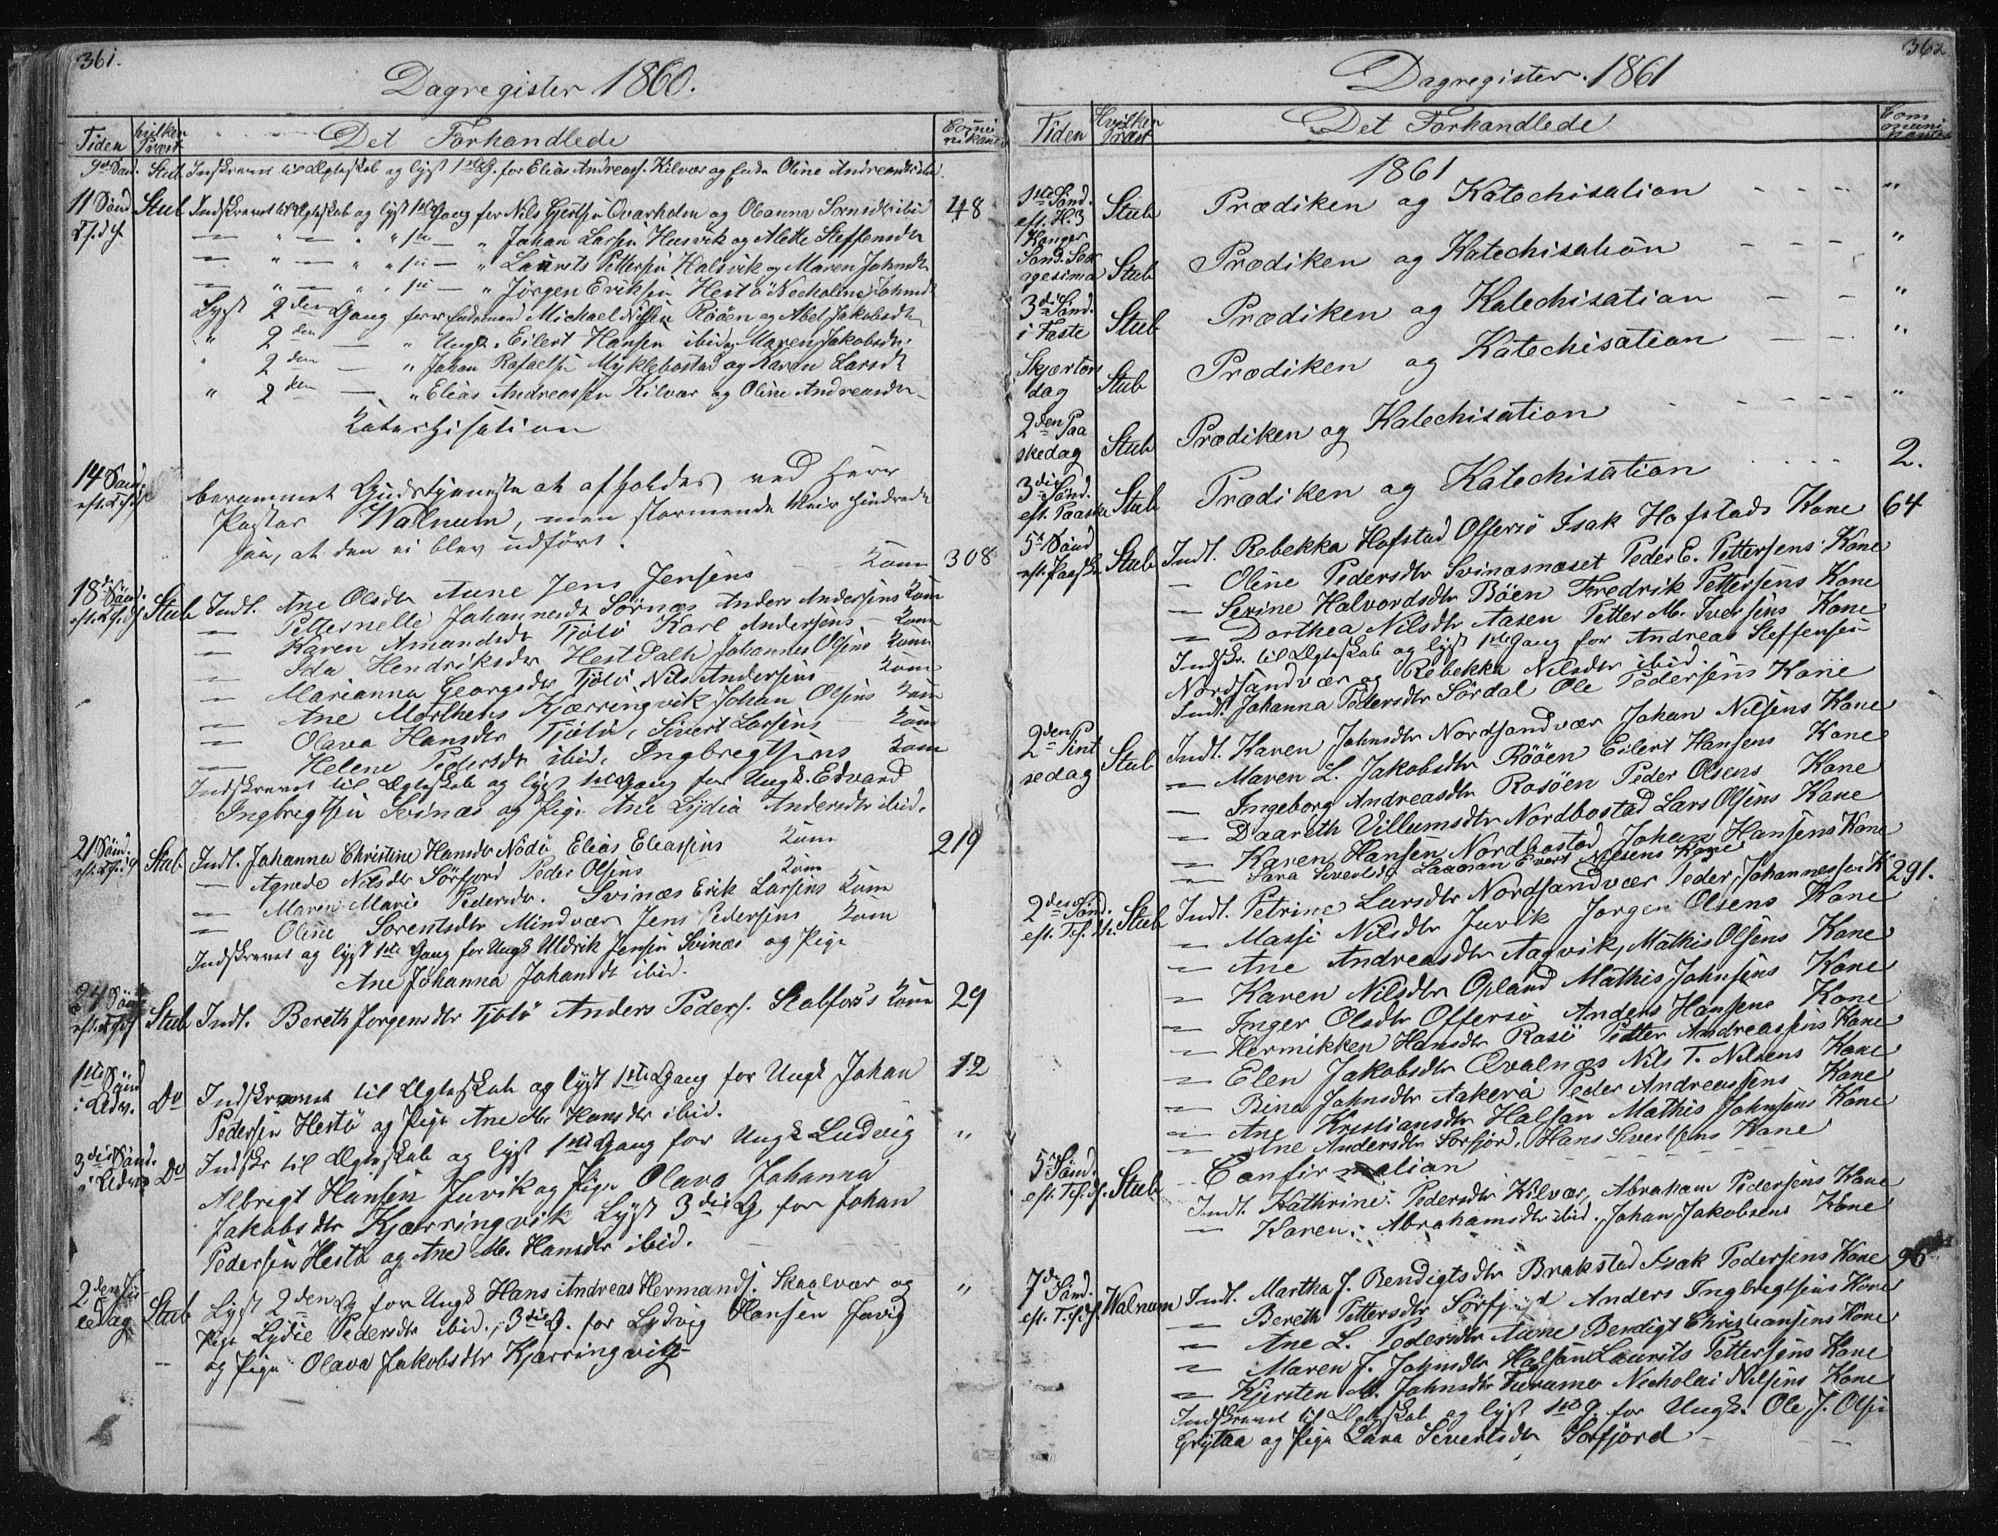 361.
Dagregister 1860.
Tiden hvilken Præst Det Forhandlede Communikanter
9de Sønd. Stub Indskrevet til Ægteskab og lyst 1ste G. for Elias Andreass. Kilvær og Oline Andreasdtr ibid.
11 Sønd Stub Indskrevet til Ægteskab og lyst 1ste Gang for Nils Gjertsen Qvarholm og Oleanna Sørnsdtr ibid 48
— " — " " 1ste — " Johan Larsen Husvik og Alette Steffensdtr
— " — " " 1ste — " Laurits Pettersen Halsvik og Maren Johnsdtr
— " — " " 1ste — " Jørgen Eriksen Hestø Necholine Johnsdtr
Lyst 2den Gang for Enkemand Michael Nilsen Røøen og Abel Jakobsdtr
" 2den — " Ungk. Eilert Hansen ibid og Maren Jakobsdtr
" 2den — " Johan Rafaelsen Myklebostad og Karen Larsdtr
" 2den — " Elias Andreassen Kilvær og Oline Andreasdtr
Katechisation
14 Sønd. eft. Tr. berammet Gudstjeneste at afholdes ved Herr
Pastor Walnum, men stormende Veir hindrede
saa, at den ei blev udført.
18 Sønd. Stub Indl. Ane Olsdtr Aune Jens Jensens Kone 308
— Petternelle Johannesdtr Sørnæs Anders Andersens Kone
— Karen Amandsdtr Tjøtø Karl Andersens — Kone
— Ida Hendriksdtr Hestdalh Johannes Olsens Kone
— Marianna Georgsdtr Tjøtø Nils Andersens Kone
— Ane Marthens Kjærringvik Johan Olsens Kone
— Olava Hansdtr Tjøtø, Sivert Larsens — Kone
— Helene Pedersdtr ibid. Ingbregtsens Kone
Indskrevet til Ægteskab og lyst 1ste Gang for Ungk. Edvard
Ingbregtsen Svinæs og Pige Ane Lydia Andersdtr ibid.
21 Sønd. Stub Indl. Johanna Christine Hansdtr Nødø Elias Eleassens Kone 219
— Agnede Nilsdtr Sørfjord Peder Olsens Kone
— Maren Marie Pedersdtr. Svinæs Erik Larsens Kone
— Oline Sørentsdtr Mindvær Jens Pedersens Kone
Indskrevet og lyst 1ste Gang for Ungk Uldrik Jensen Svinæs og Pige
Ane Johanna Johansdtr ibid.
24 Sønd Stub Indl. Bereth Jørgensdtr Tjøtø Anders Peders. Stabfors's Kone 29
1ste Sønd i Adv. Do Indskrevet til Ægteskab og lyst 1ste Gang for Ungk Johan 12
Pedersen Hestø og Pige Ane M. Hansdtr ibid.
3die Sønd. i Adv. Do Indskr til Ægteskab og lyst 1ste Gang for Ungk Ludvig "
Albrigt Hansen Juvik og Pige Olava Johanna
Jakobsdtr Kjærringvik Lyst 3die G for Johan
Pedersen Hestø og Ane M. Hansdtr ibid.
2den Juledag Stub Lyst 2den G for Ungk Hans Andreas Hermands. Skaalvær og "
Pige Lydie Pedersdtr ibid., 3die G. for Lydvig Hansen Juvig
og Pige Olava Jakobsdtr Kjærringvik
362
Dagregister. 1861
Tiden Hvilken Præst Det Forhandlede Communikanter
1861
1ste Sønd. eft. H. 3 Konger Stub Prædiken og Katechisation - - - - "
Sønd. Sexagesima Stub Prædiken og Katechisation - - - - "
3die Sønd. i Faste Stub Prædiken og Katechisation - - - "
Skjærtorsdag Stub Prædiken og Katechisation - - - "
2den Paaskedag Stub Prædiken og Katechisation - - - - "
3die Sønd. eft. Paaske Stub Prædiken og Katechisation . . . . 2.
5te Sønd eft. Paaske Stub Indl. Rebekka Hofstad Offersø Isak Hofstads Kone 64
— Oline Pedersdtr Svinæsnæset Peder E. Pettersens Kone
— Serine Halvordsdtr Bøen Fredrik Pettersens Kone
— Dorthea Nilsdtr Aasen Petter M. Iversens Kone
Indskr. til Ægteskab og lyst 1ste Gang for Andreas Steffensen
Nordsandvær og Rebekka Nilsdtr ibid.
Indl. Johanna Pedersdtr Sørdal Ole Pedersens Kone
2den Pintsedag Stub Indl. Karen Johnsdtr Nordsandvær Johan Nilsens Kone
— Maren L. Jakobsdtr Røøen Eilert Hansens Kone
— Ingeborg Andreasdtr Rosøen Peder Olsens Kone
— Daareth Villumsdtr Nordbostad Lars Olsens Kone
— Karen Hansen Nordbostad Johan Hansens Kone
— Sara Sivertsdtr Evert Nilsens Kone
2den Sønd. Stub Indl. Petrine Larsdtr Nordsandvær Peder Johannessen K 291.
— Massi Nilsdtr Juvik Jørgen Olsens Kone
— Ane Andreasdtr Aagvik, Mathis Olsens Kone
— Karen Nilsdtr Opland Mathis Johnsens Kone
— Inger Olsdtr Offersø Anders Hansens Kone
— Hermikken Hansdtr Rosø Petter Andreassens Kone
— Elen Jakobsdtr Qvalnæs Nils T. Nilsens Kone
— Bina Johnsdtr Aakerø Peder Andreassens Kone
— Ane Kristiansdtr Halsan Mathis Johnsens Kone
— Ane Andersdtr Sørfjord. Hans Sivertsens Kone
5te Sønd. Stub Confirmation
Indl. Kathrine Pedersdtr Kilvær, Abraham Pedersens Kone
— Karen. Abrahamsdtr ibid. Johan Jakobsens Kone
7de Sønd. Walnum Indl. Martha J. Bendigtsdtr Brakstad Isak Pedersens Kone 96
— Bereth Pettersdtr Sørfjord Anders Ingbregtsens Kone
— Ane L. Pedersdtr Aune Bendigt Christiansens Kone
— Maren J. Johnsdtr Halsan Laurits Pettersens Kone
— Kjersten M. Johnsdtr Necholai Nilsens Kone
Indskrevet til Ægteskab og lyst 1ste G for Ungk. Ole J. Olsen
Grytaa og Pige Sara Sivertsdtr Sørfjord